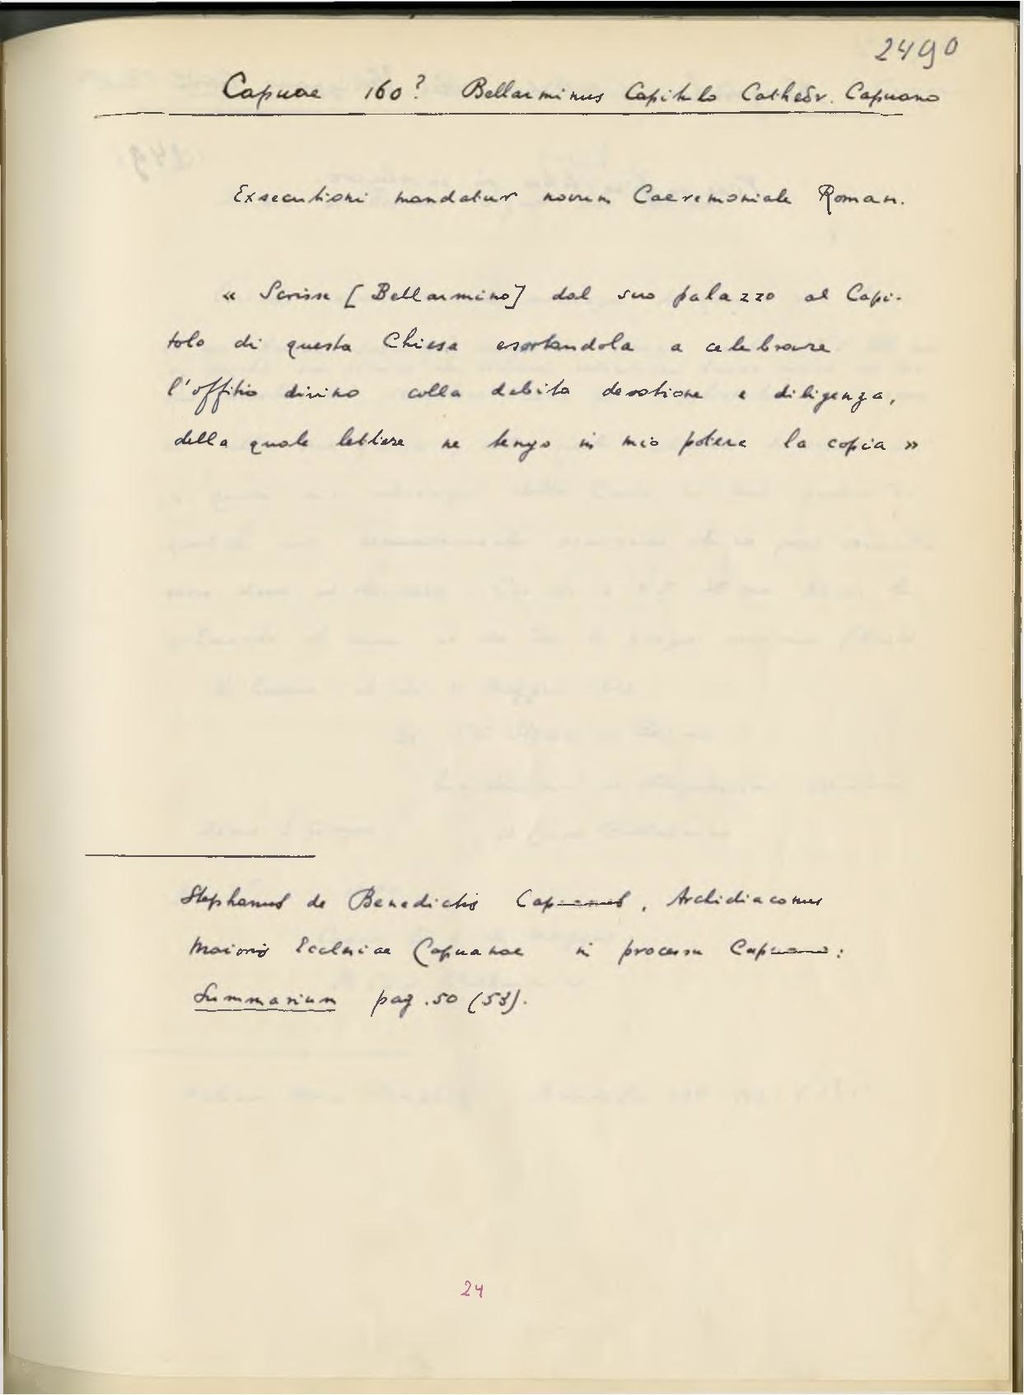 2490
Capuae 160? Bellarminus Capitulo Cathedr. Capuano
Exsecutioni mandatur novum Caeremoniale Roman.
« Scrisse [Bellarmino] dal suo palazzo al Capi-
tolo di questa Chiesa esortandola a celebrare
l'offitio divino colla debita devotione e diligenza,
della quale lettera ne tengo in mio potere la copia »
Stephanus de Benedictis Capuanus, Archidiaconus
Maioris Ecclesiae Capuanae in processu Capuano:
Summarium pag. 50 (53).
24